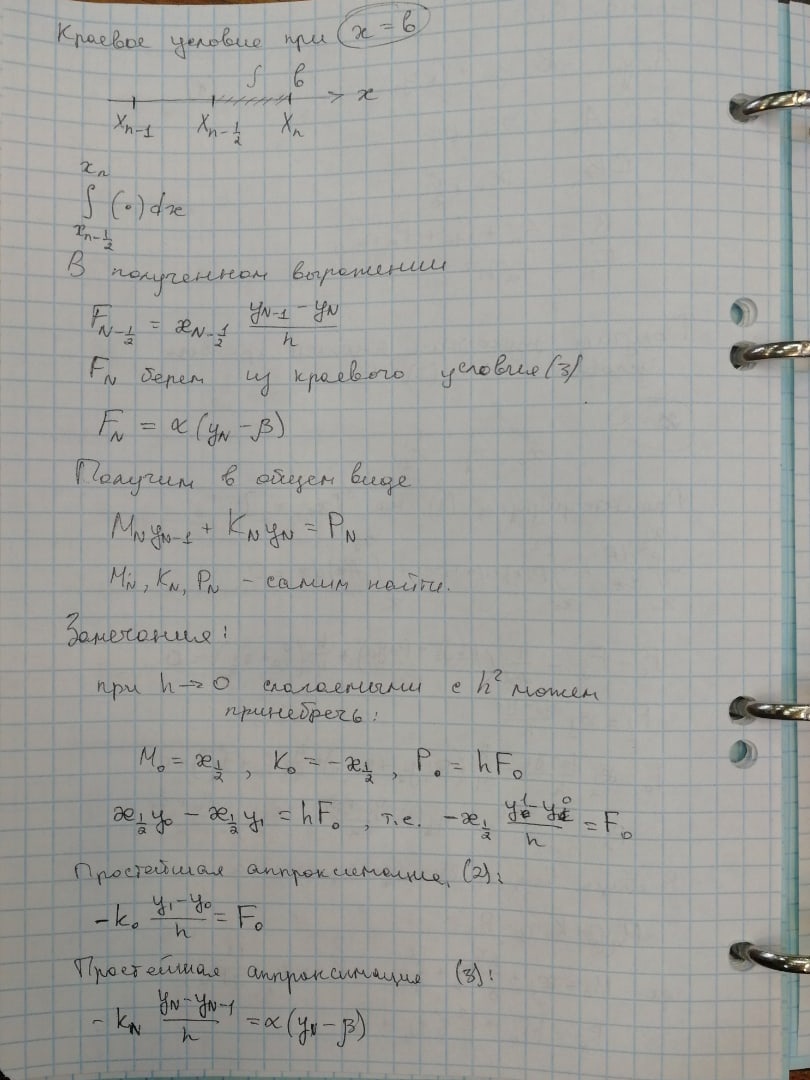 Краевое условие при x = b
∫ b
x
Xn-1 Xn-1/2 Xn
xn
∫ (•) dx
xn-1/2
В полученном выражении
FN-1/2 = æN-1/2 (yN-1 - yN)/h
FN берем из краевого условия (3)
FN = α (yN - β)
Получим в общем виде
MN yN-1 + KN yN = PN
MN, KN, PN - самим найти.
Замечания:
при h → 0 слагаемыми с h² можем
принебречь:
M0 = æ1/2, K0 = -æ1/2, P0 = hF0
æ1/2 y0 - æ1/2 y1 = hF0, т.е. -æ1/2 (y1 - y0)/h = F0
Простейшая аппроксимация (2):
-k0 (y1 - y0)/h = F0
Простейшая аппроксимация (3):
- kN (yN - yN-1)/h = α (yN - β)